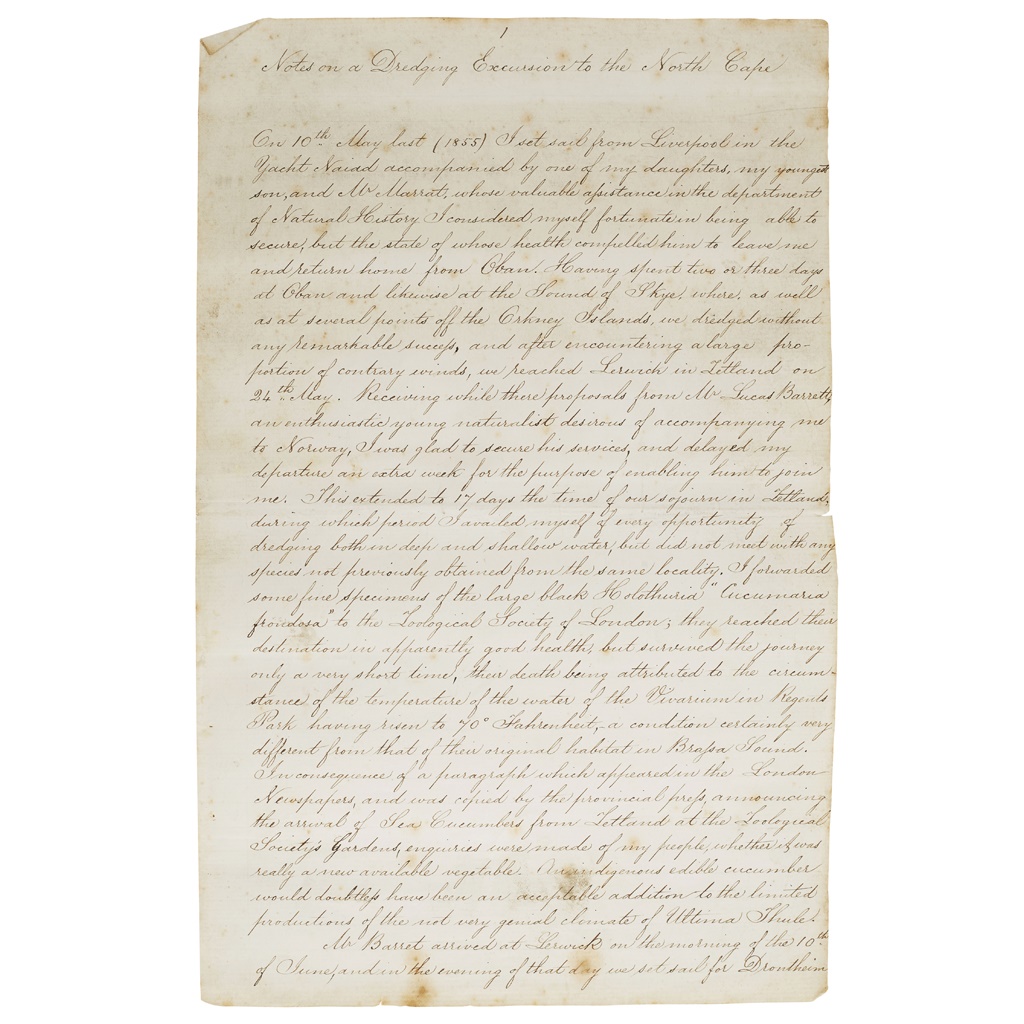 1
Notes on a Dredging Excursion to the North Cape
On 10th May last (1855) I set sail from Liverpool in the
Yacht Naiad accompanied by one of my daughters, my youngest
son, and Mr Marrat, whose valuable assistance in the department
of Natural History I considered myself fortunate in being able to
secure, but the state of whose health compelled him to leave me
and return home from Oban. Having spent two or three days
at Oban and likewise at the Sound of Skye, where, as well
as at several points off the Orkney Islands, we dredged without
any remarkable success, and after encountering a large pro-
portion of contrary winds, we reached Lerwich in Zetland on
24th May. Receiving while there proposals from Mr Lucas Barrett,
an enthusiastic young naturalist desirous of accompanying me
to Norway, I was glad to secure his services, and delayed my
departure an extra week for the purpose of enabling him to join
me. This extended to 17 days the time of our sojourn in Zetland,
during which period I availed myself of every opportunity of
dredging both in deep and shallow water, but did not meet with any
species not previously obtained from the same locality. I forwarded
some fine specimens of the large black Holothuria "Cucumaria
frondosa" to the Zoological Society of London; they reached their
destination in apparently good health, but survived the journey
only a very short time, their death being attributed to the circum-
stance of the temperature of the water of the Vivarium in Regents
Park having risen to 70° Fahrenheit,–a condition certainly very
different from that of their original habitat in Brassa Sound.
In consequence of a paragraph which appeared in the London
Newspapers, and was copied by the provincial press, announcing
the arrival of Sea Cucumbers from Zetland at the Zoological
Society's Gardens, enquiries were made of my people, whether it was
really a new available vegetable. An indigenous edible cucumber
would doubtless have been an acceptable addition to the limited
productions of the not very genial climate of Ultima Thule.
Mr Barret arrived at Lerwick on the morning of the 10th
of June, and in the evening of that day we set sail for Drontheim